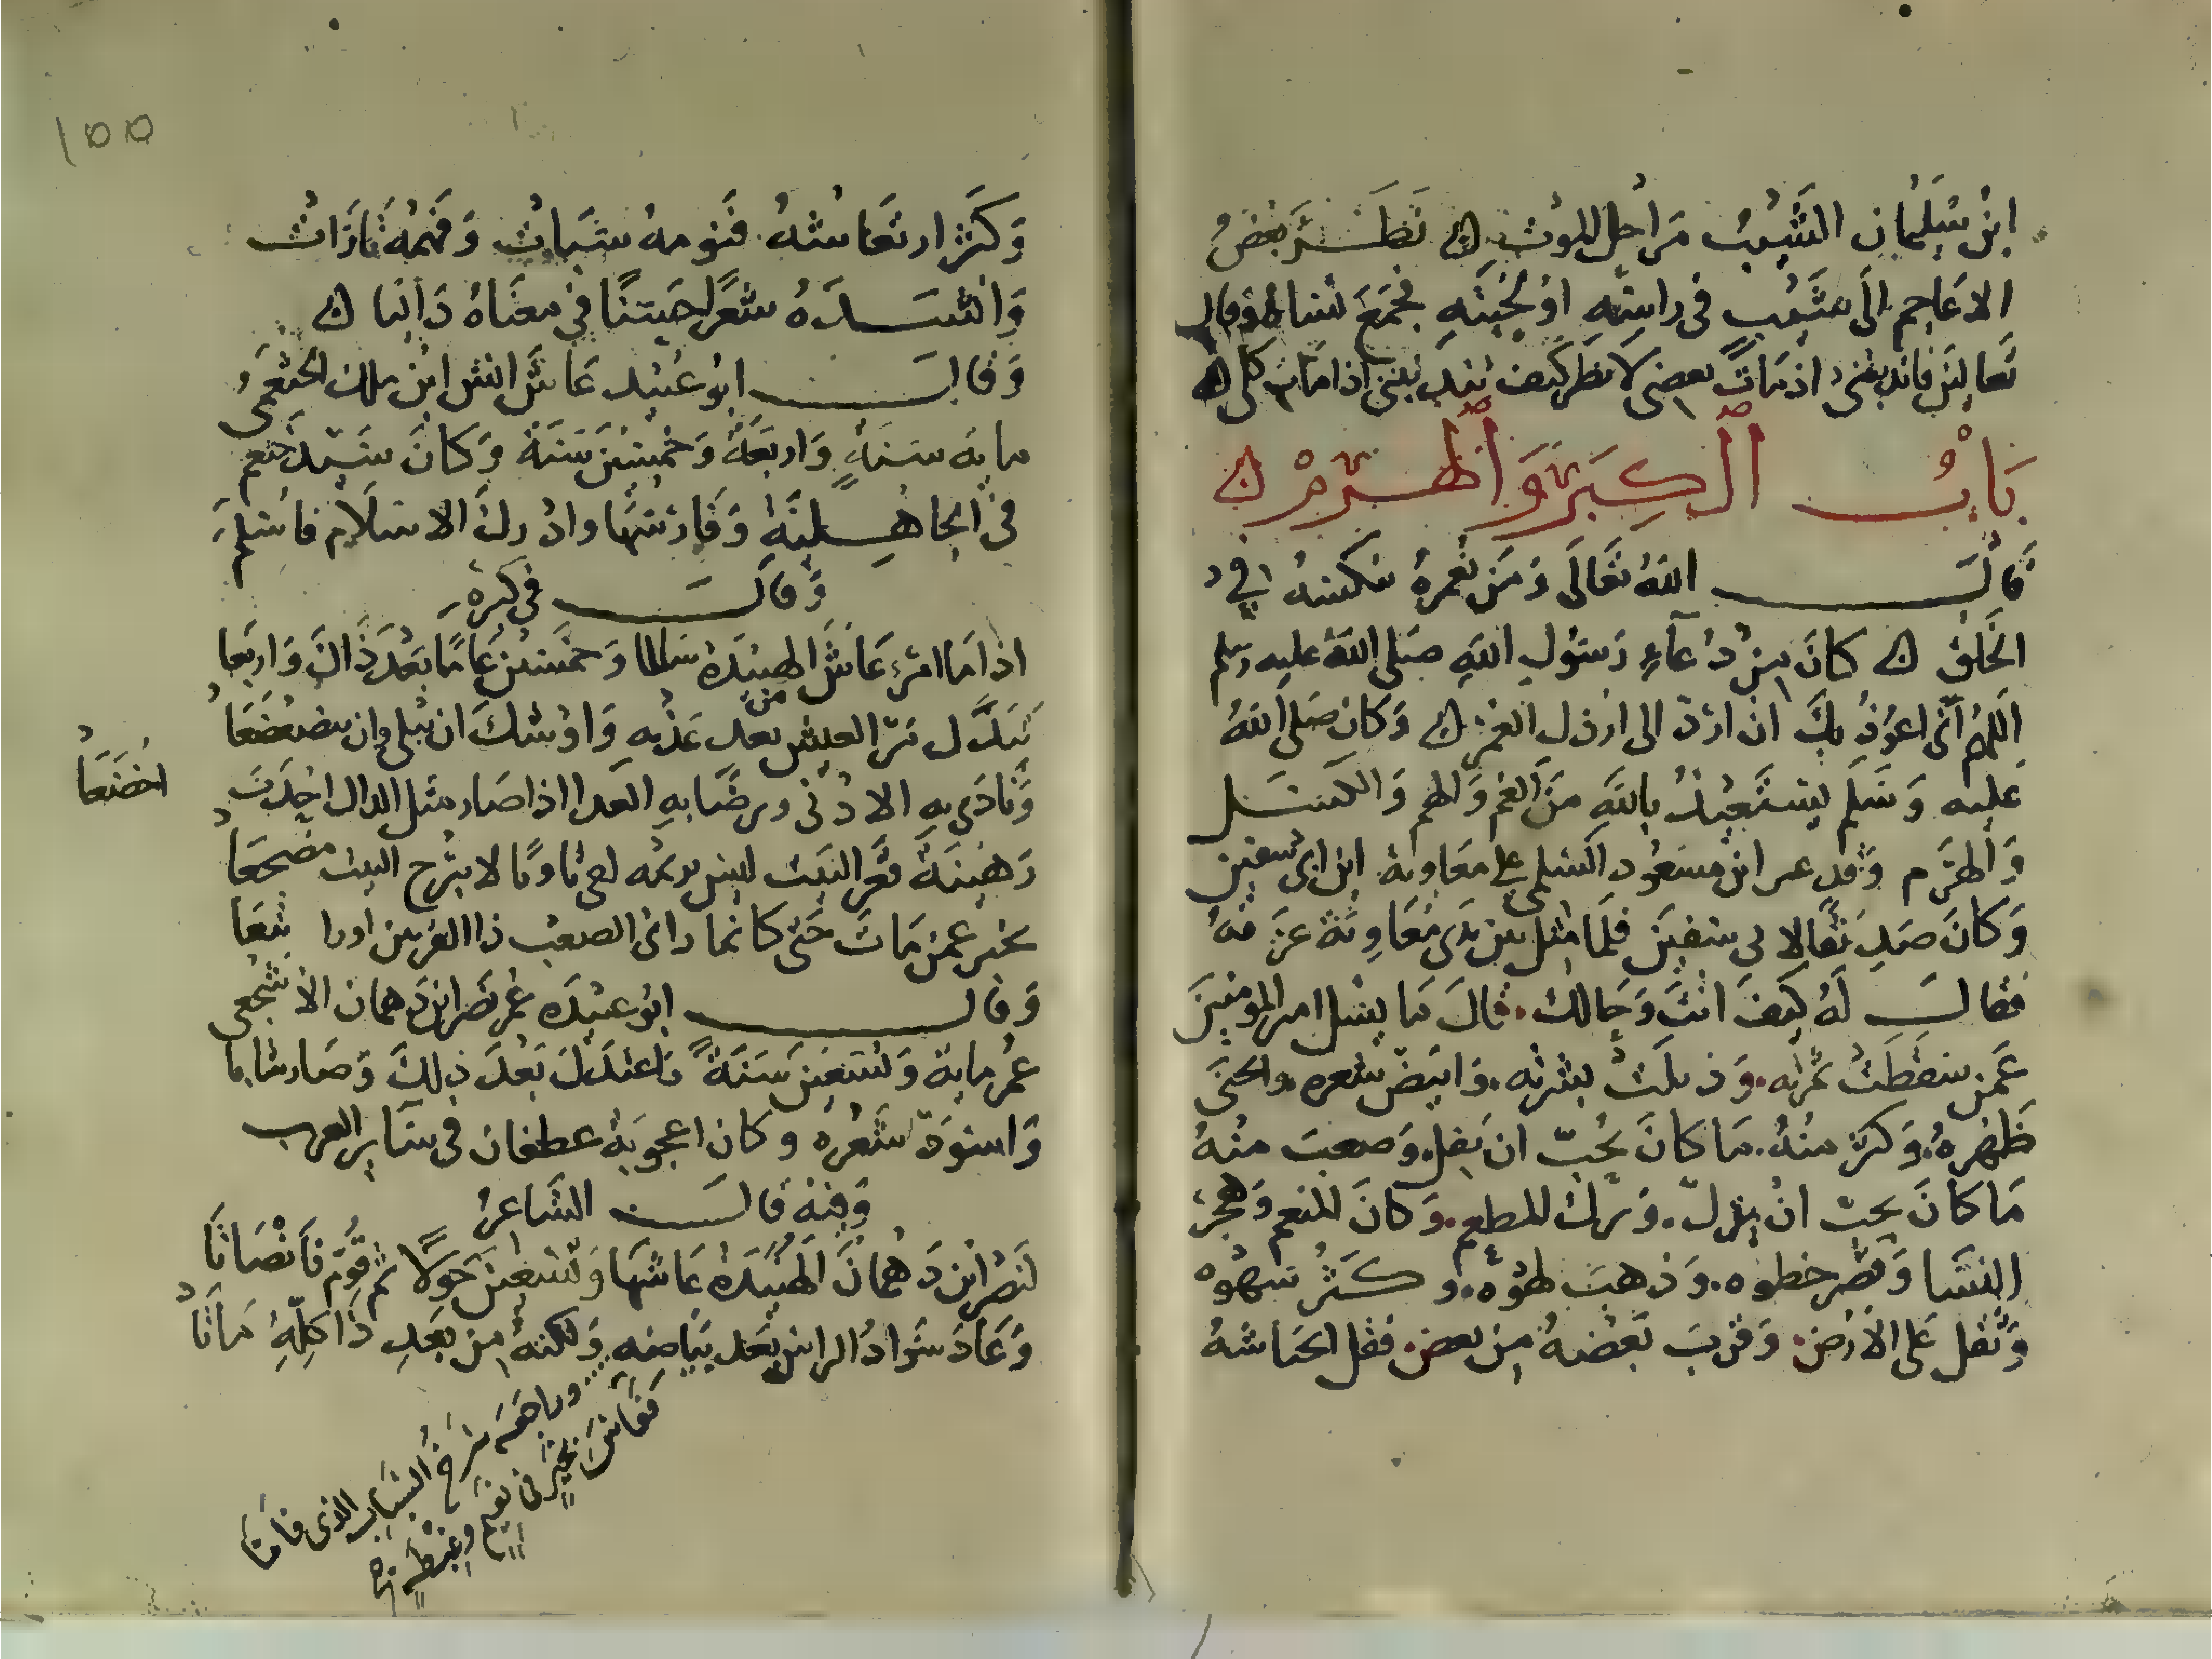 ابن سليمان الشيب مراحل الموت ه نظر بعض
الاعاجم الى شيب في راسه او لحيته فجمع نساءه وقال
تعالين فاندبنني اذ مات بعضي لانظر كيف تندبنني اذا مات كلي ه
باب الكبر والهرم ه
قال الله تعالى ومن نعمره ننكسه في
الخلق ه كان من دعاء رسول الله صلى الله عليه وسلم
اللهم اني اعوذ بك ان ارد الى ارذل العمر ه وكان صلى الله
عليه وسلم يستعيذ بالله من الغم والهم والكسل
والهرم وقدم عمر ابن مسعود السلمي على معاوية ابن ابي سفين
وكان صديقا لابي سفين فلما مثل بين يدي معاوية عرفه
فقال له كيف انت وحالك قال ما يسل امير المومنين
عمن سقطت ثمرته وذبلت بشرته وابيض شعره وانحنى
ظهره وكثر منه ما كان يحب ان يقل وصعب منه
ما كان يحب ان يذل وترك المطعم وكان المنعم وهجر
النسا وقصر خطوه وذهب لهوه وكثر سهوه
وثقل على الارض وقرب بعضه من بعض فقل انحياشه
١٥٥
وكثر ارتعاشه فنومه سبات وفهمه تارات
وانشده شعرا حسنا في معناه دانيا ه
وقال ابو عبيد عاش انس ابن ملك الخثعمي
مايه سنة واربعة وخمسين سنة وكان سيد خثعم
في الجاهلية وفارسها وادرك الاسلام فاسلم
وقال في كبره
اذا ما امرء عاش الهنيدة سالما وخمسين عاما بعد ذاك واربعا
تبدل مر العيش من بعد عذبه واوشك ان يبلى وان يتضعضعا
وتاذى به الادنى ويرضى به العدا اذا صار مثل الدال احدب
اخضعا
رهينة قعر البيت ليس يريمه لعي ثاويا لا يبرح البيت مضجعا
يخبر عمن مات حتى كانما راى الصعب ذا القرنين او را تبعا
وقال ابو عبيده عمر نصر ابن دهمان الاشجعي
عمر ماية وتسعين سنة فاعتدل بعد ذلك وصار شابا
واسود شعره وكان اعجوبة غطفان في ساير العرب
وفيه قال الشاعر
لنصر ابن دهمان الهنيدة عاشها وتسعين حولا ثم قوم فانصاتا
وعاد سواد الراس بعد بياضه ولكنه من بعد ذا كله ماتا
وراجعه شرخ الشباب الذي فاتا
فعاش بخير في نعيم وغبطة